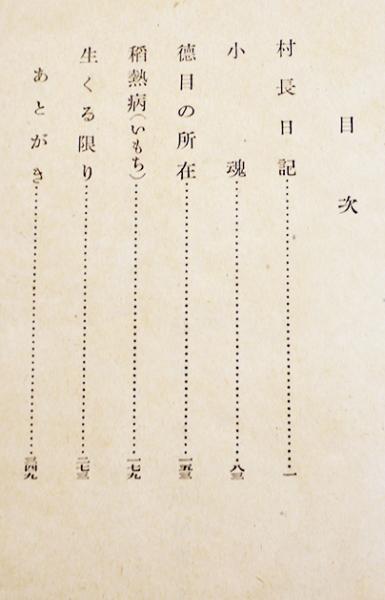 目次
村長日記……一
小魂……八三
徳目の所在……一五三
稻熱病(いもち)……一七九
生くる限り……二七三
あとがき……三四九